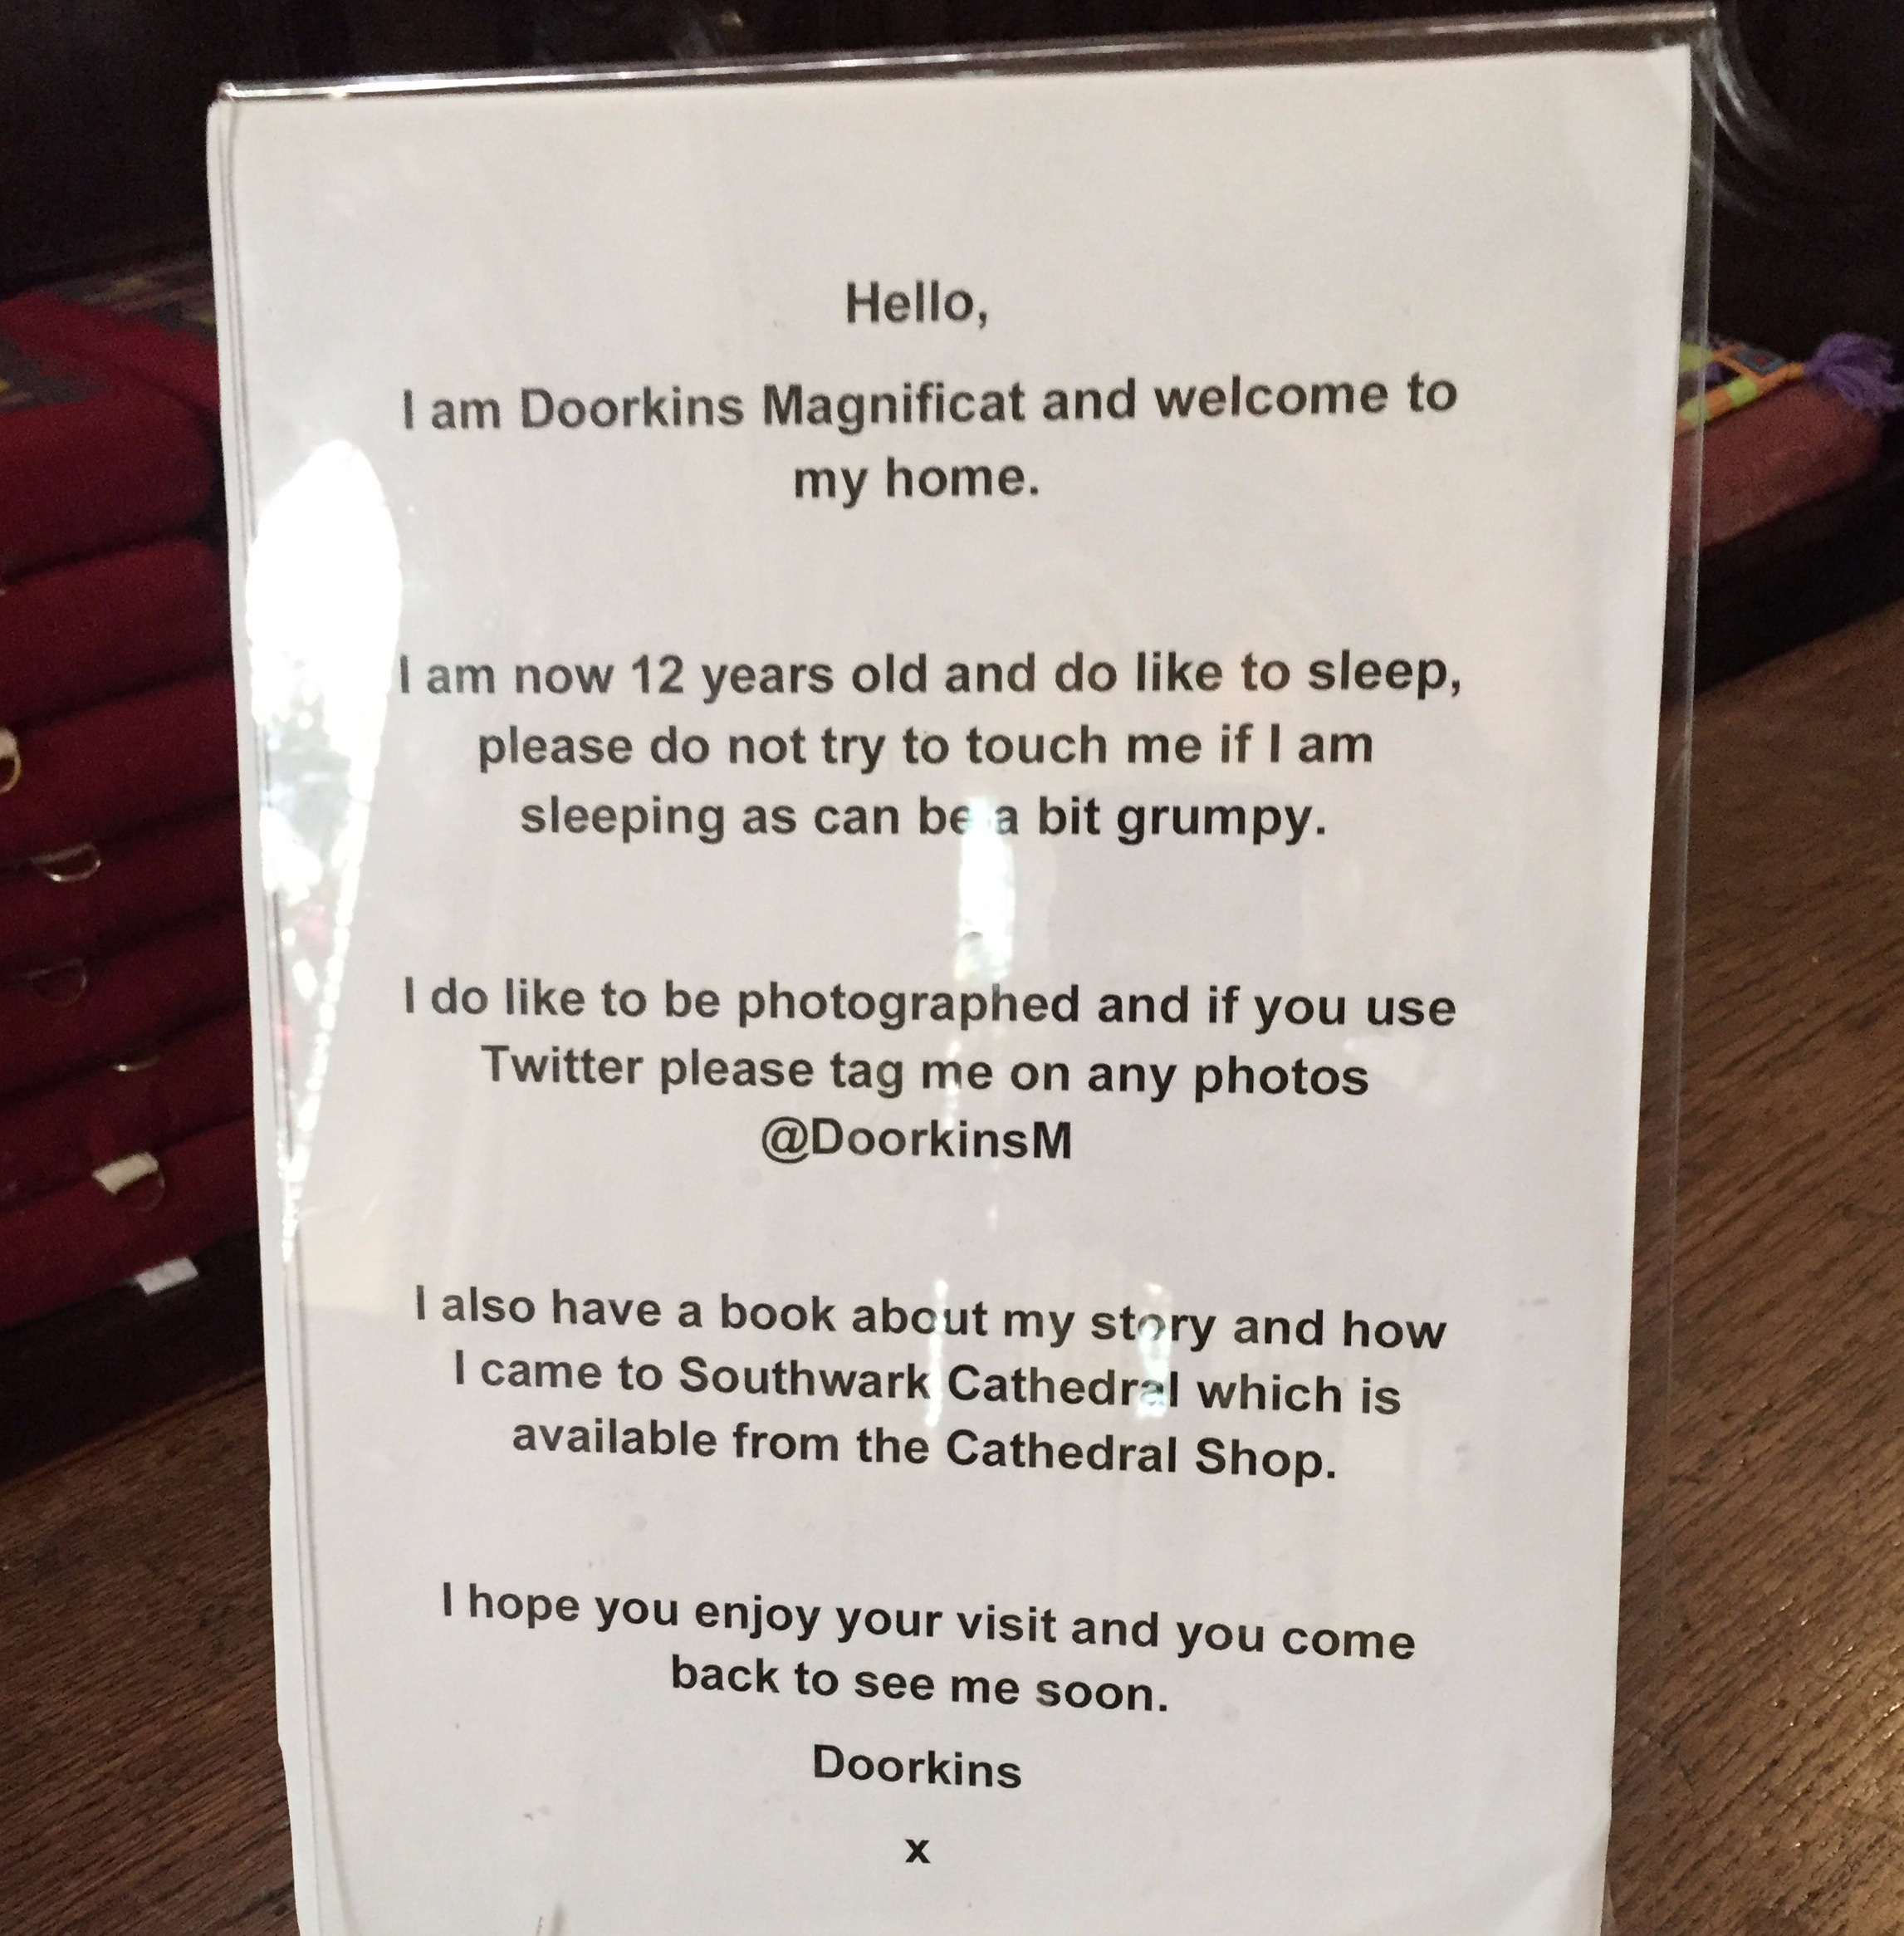 Hello,
I am Doorkins Magnificat and welcome to
my home.
I am now 12 years old and do like to sleep,
please do not try to touch me if I am
sleeping as can be a bit grumpy.
I do like to be photographed and if you use
Twitter please tag me on any photos
@DoorkinsM
I also have a book about my story and how
I came to Southwark Cathedral which is
available from the Cathedral Shop.
I hope you enjoy your visit and you come
back to see me soon.
Doorkins
x